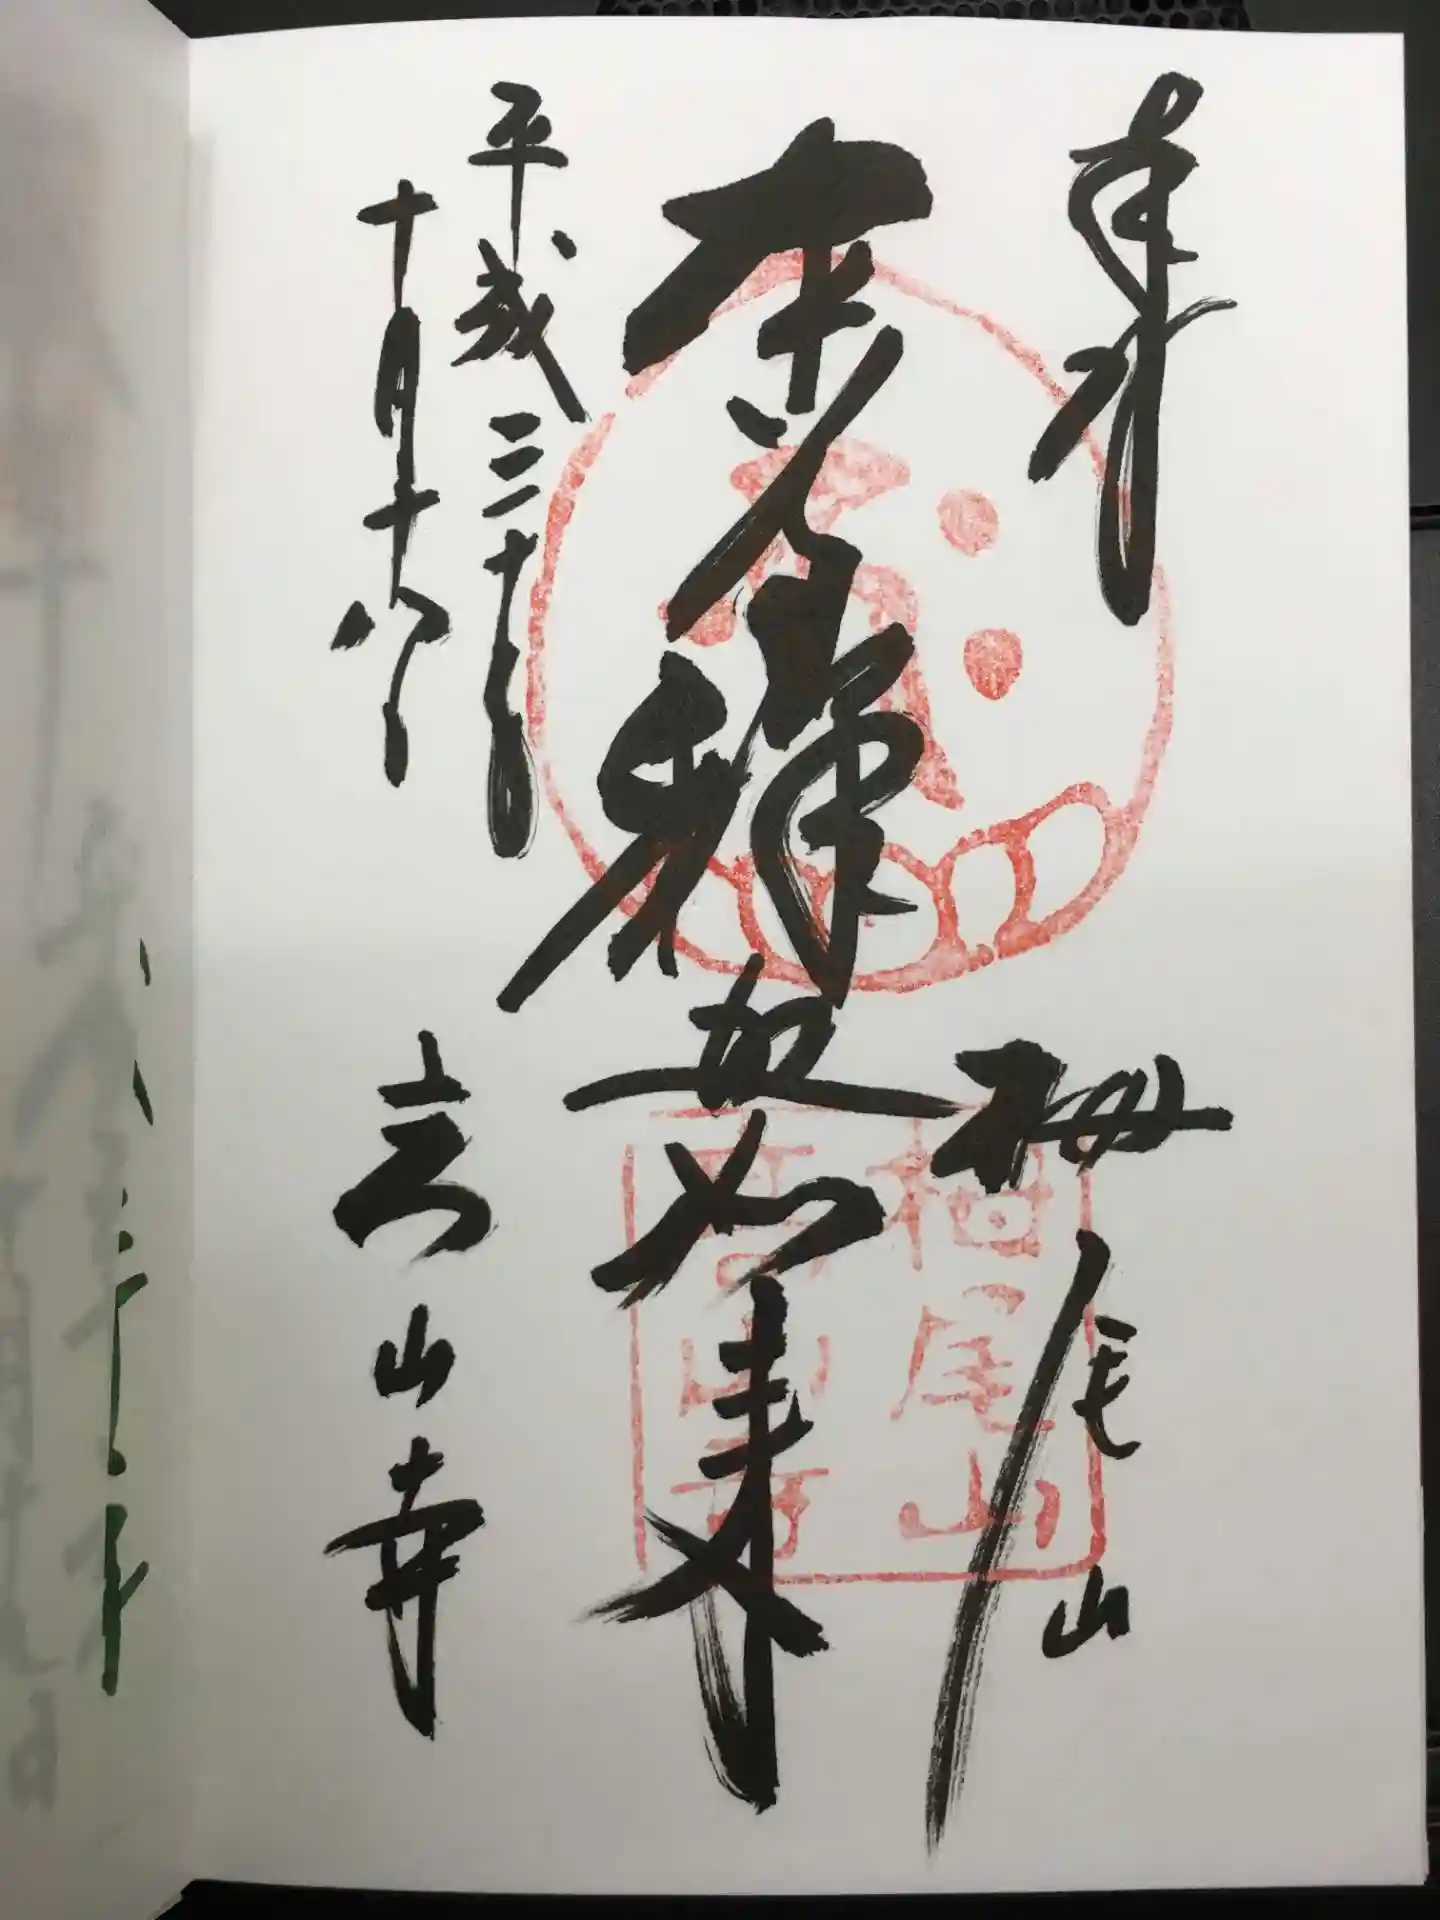 奉拝　栂尾山
釋迦如来
平成三十年
十月十八日
高山寺
栂尾山
高山寺